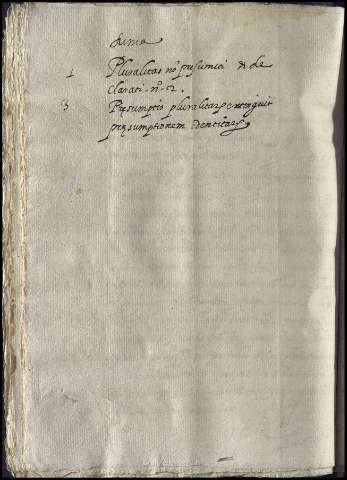 suma
1 Pluralitas nõ presumit[ur] & de
clarati. nº. 2.
3 Presumptio pluralitatis extinguit
presumptionem identitatis